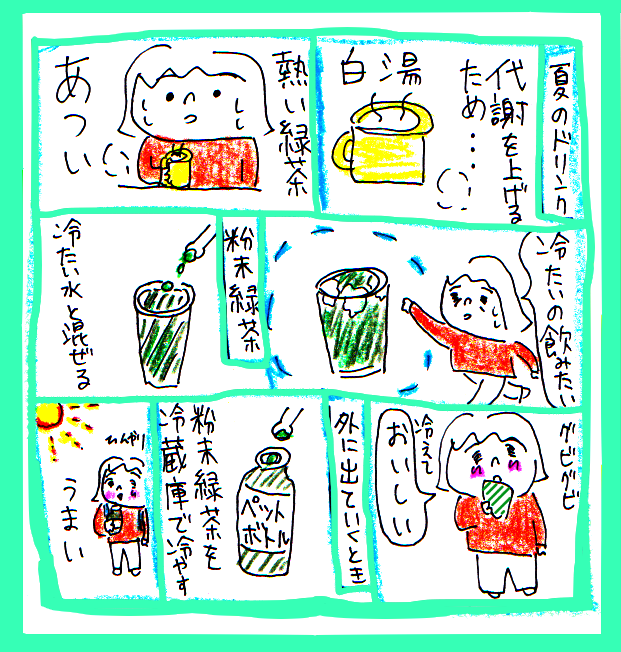 夏のドリンク
代謝を上げる
ため…
白湯
熱い緑茶
あつい
冷たいの飲みたい
粉末緑茶
冷たい水と混ぜる
グビグビ
冷えて
おいしい
外に出ていくとき
ペット
ボトル
粉末緑茶を
冷蔵庫で冷やす
ひんやり
うまい